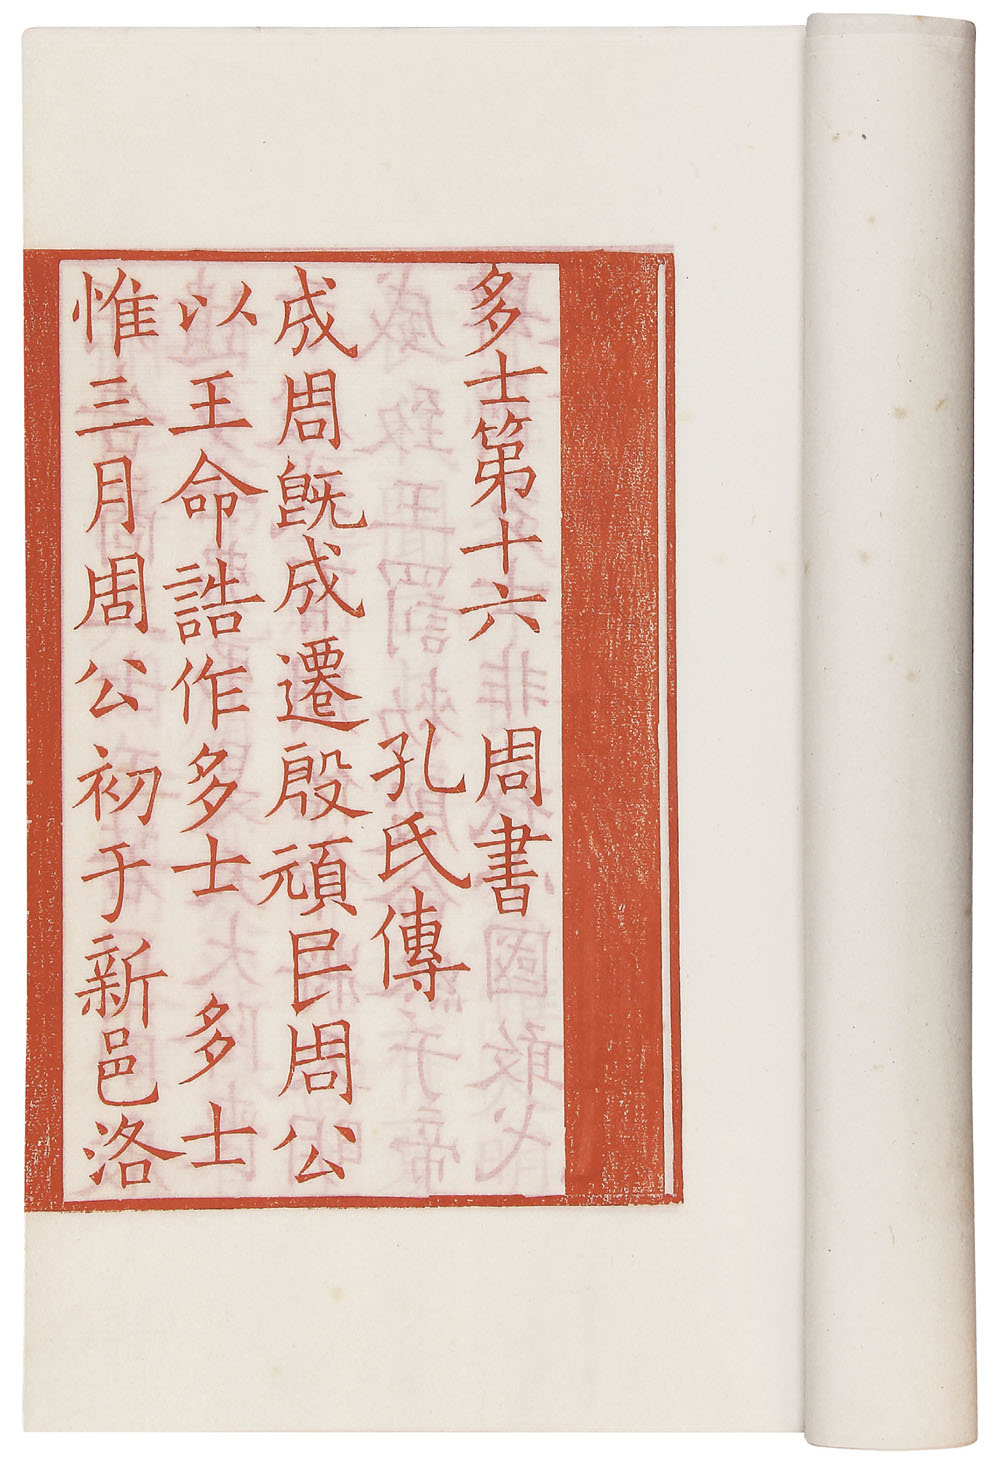 多士第十六 周書
孔氏傳
成周旣成遷殷頑民周公
以王命誥作多士 多士
惟三月周公初于新邑洛